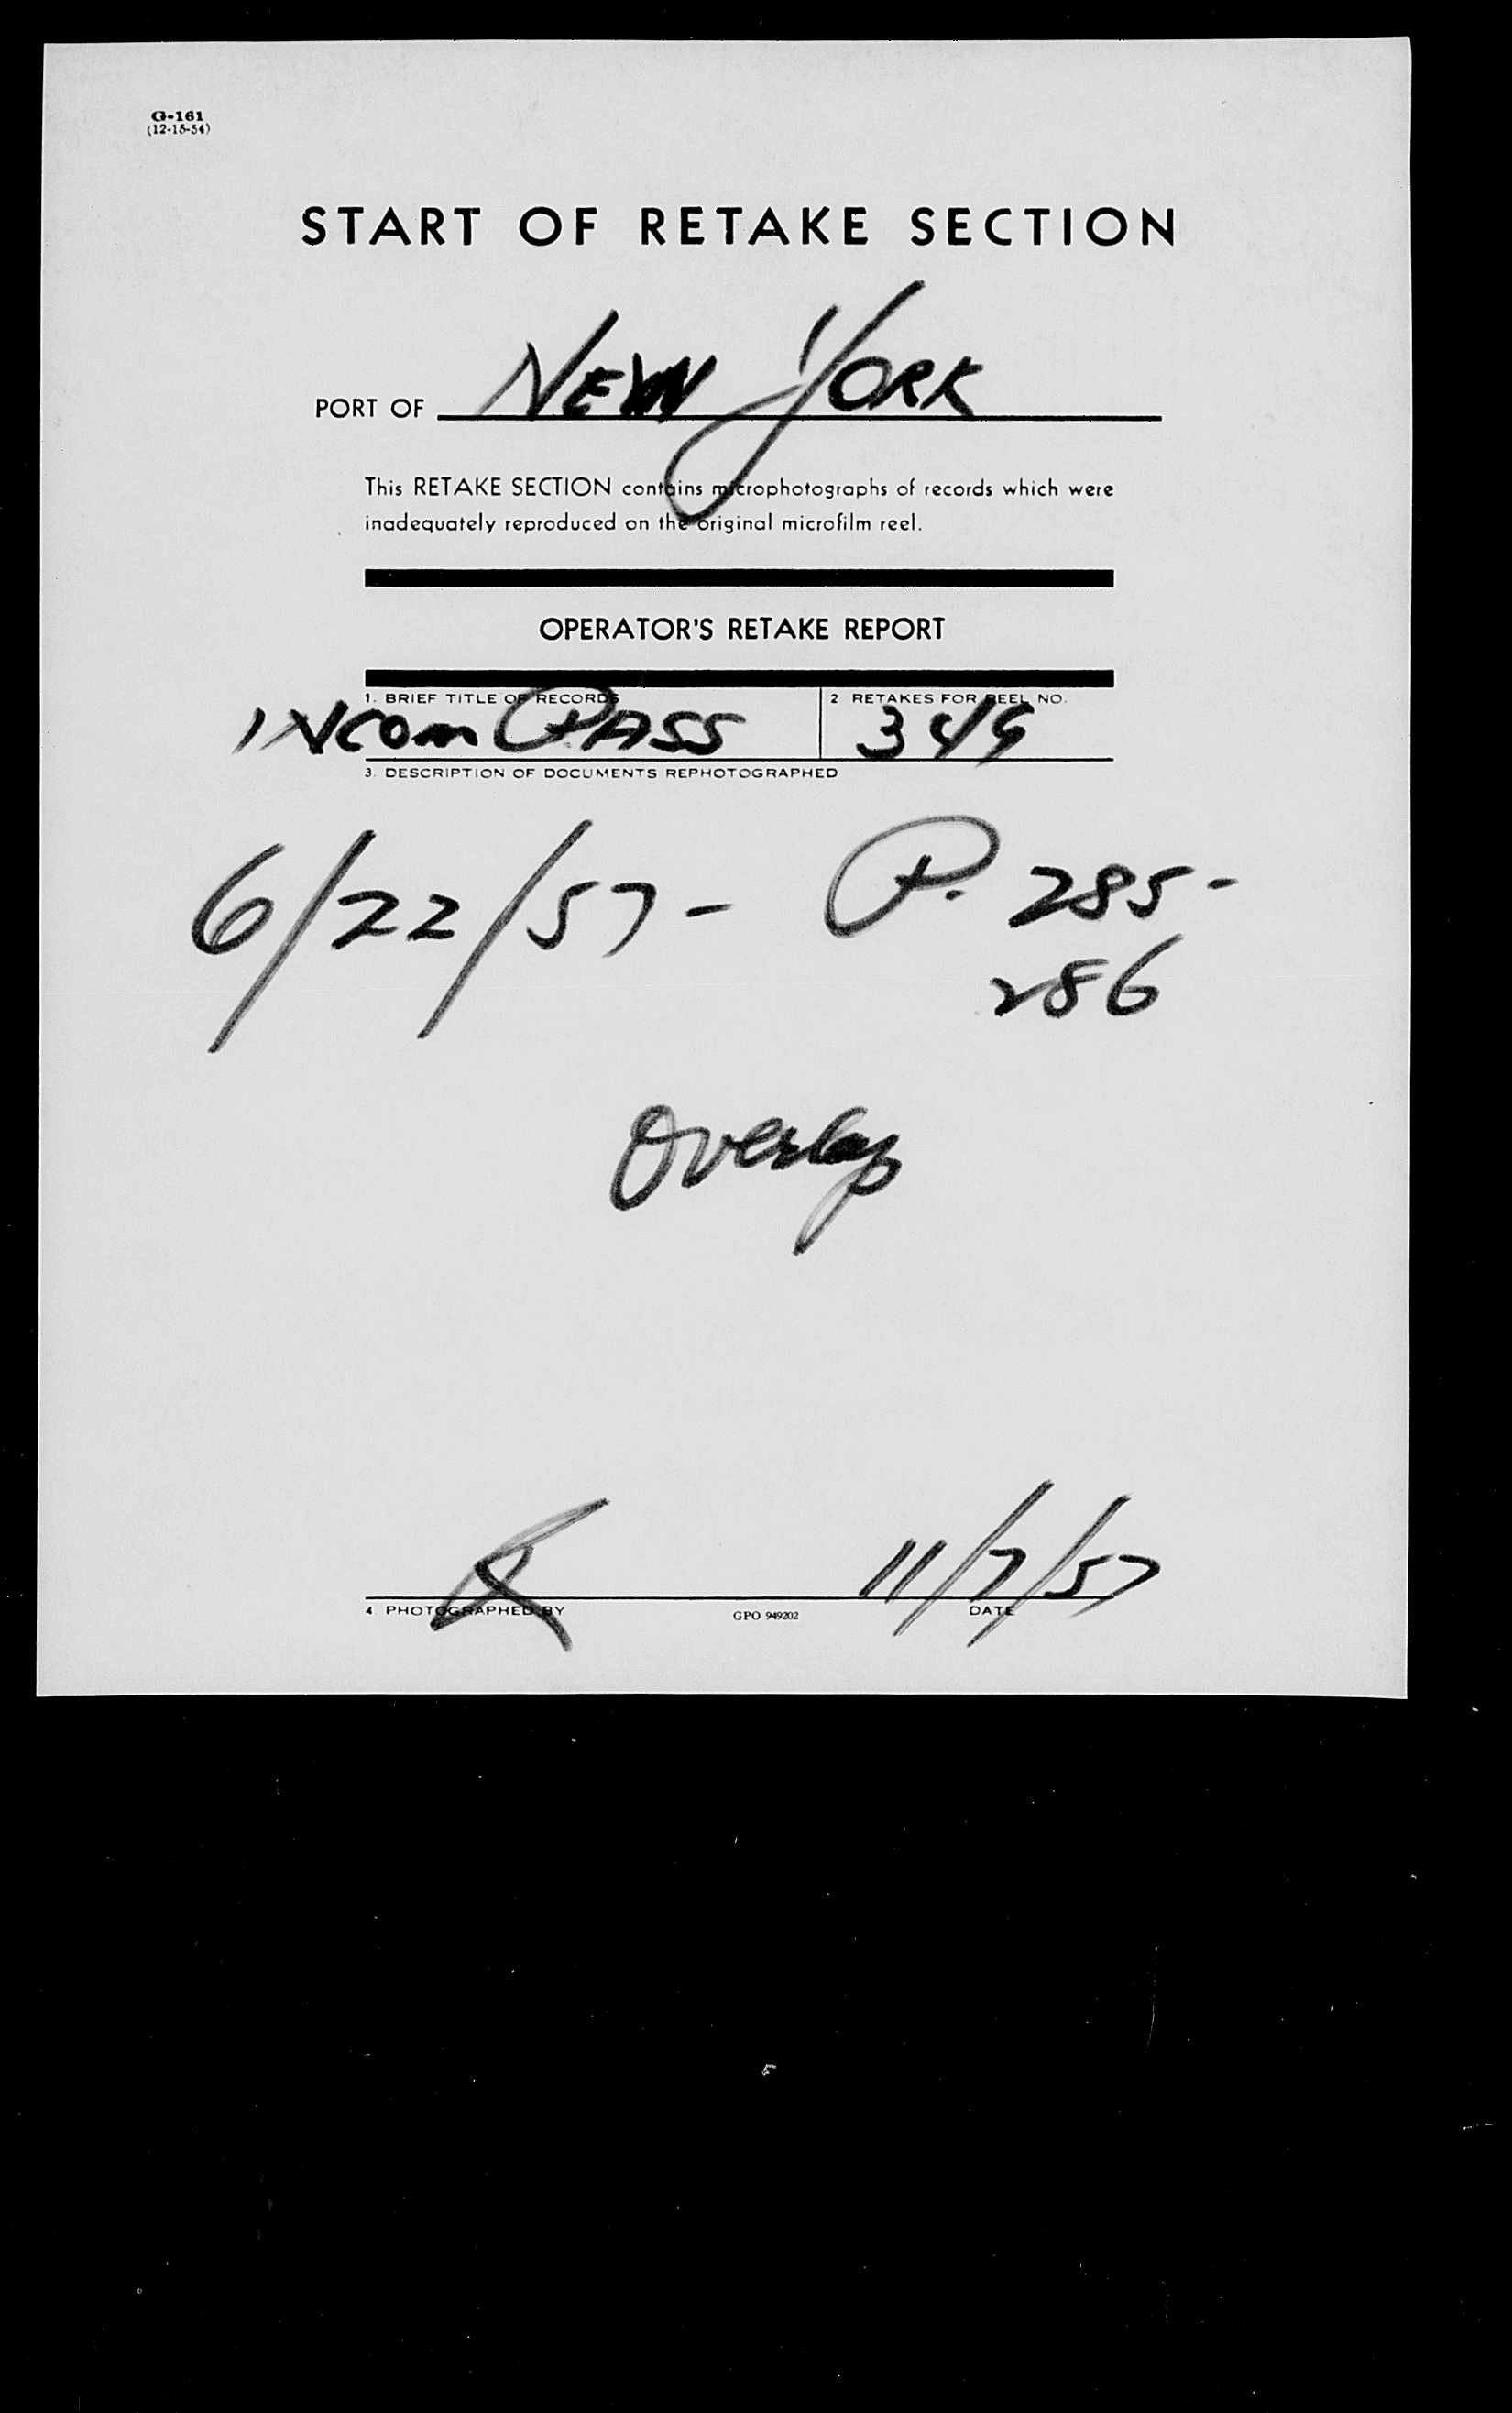 G-161
(12-15-54)
START OF RETAKE SECTION
PORT OF NEW YORK
This RETAKE SECTION contains microphotographs of records which were
inadequately reproduced on the original microfilm reel.
OPERATOR'S RETAKE REPORT
1. BRIEF TITLE OF RECORDS 2 RETAKES FOR REEL NO.
INCOM PASS
3. DESCRIPTION OF DOCUMENTS REPHOTOGRAPHED
6/22/57- P. 285-
286
Overlap
11/7/57
4 PHOTOGRAPHED BY GPO 949202 DATE